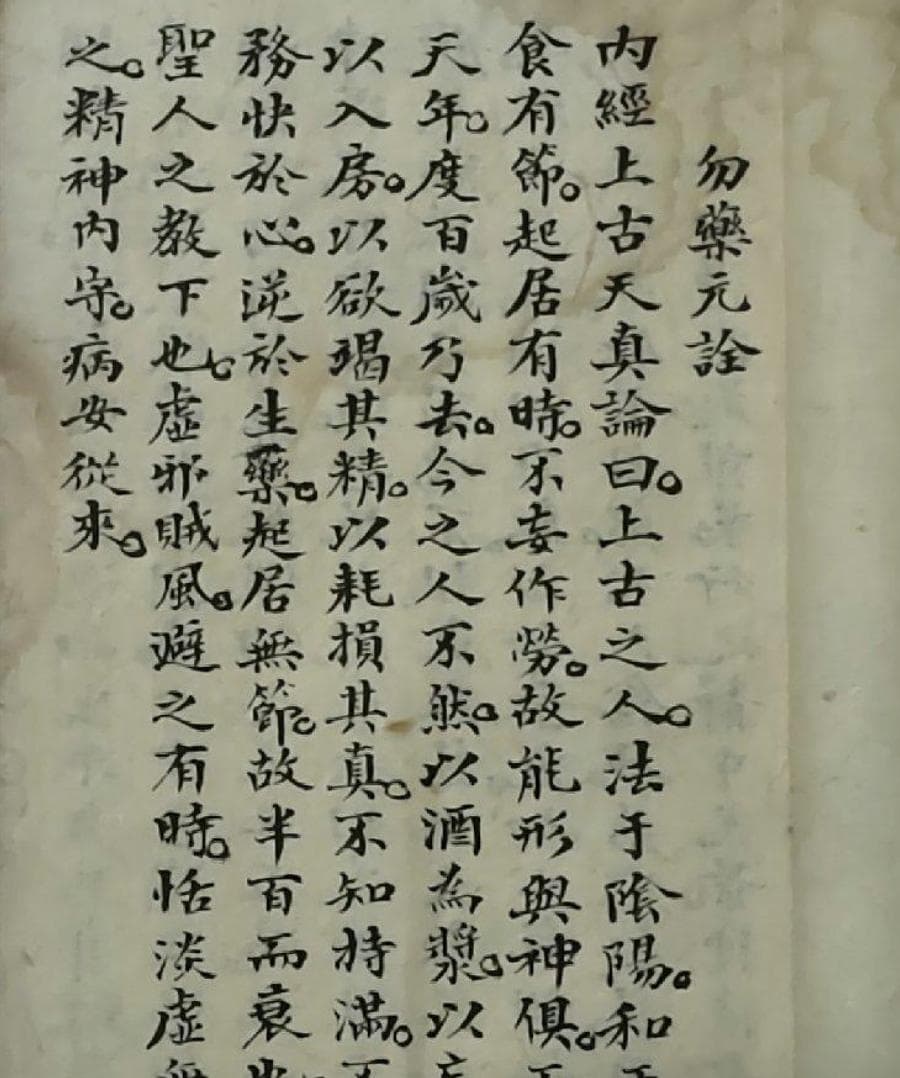 勿藥元詮
內經上古天真論曰。上古之人。法于陰陽。和
食有節。起居有時。不妄作勞。故能形與神俱。
天年。度百歲乃去。今之人不然。以酒為漿。以
以入房。以欲竭其精。以耗損其真。不知持滿。不
務快於心。逆於生藥。起居無節。故半百而衰
聖人之教下也。虛邪賊風。避之有時。恬淡虛
之。精神內守。病安從來。